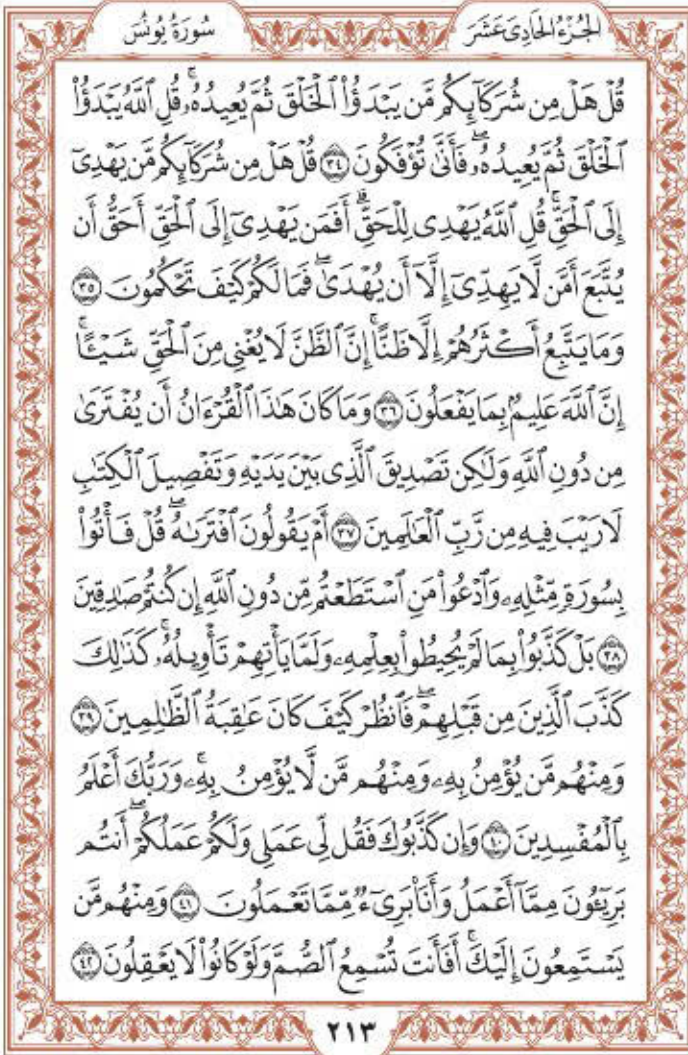 سُورَةُ يُونُسَ
الجُزْءُ الحَادِىَ عَشَرَ
قُلْ هَلْ مِن شُرَكَآئِكُم مَّن يَبْدَؤُاْ ٱلْخَلْقَ ثُمَّ يُعِيدُهُۥۚ قُلِ ٱللَّهُ يَبْدَؤُاْ
ٱلْخَلْقَ ثُمَّ يُعِيدُهُۥۖ فَأَنَّىٰ تُؤْفَكُونَ ٣٤ قُلْ هَلْ مِن شُرَكَآئِكُم مَّن يَهْدِىٓ
إِلَى ٱلْحَقِّۚ قُلِ ٱللَّهُ يَهْدِى لِلْحَقِّۗ أَفَمَن يَهْدِىٓ إِلَى ٱلْحَقِّ أَحَقُّ أَن
يُتَّبَعَ أَمَّن لَّا يَهِدِّىٓ إِلَّآ أَن يُهْدَىٰۖ فَمَا لَكُمْ كَيْفَ تَحْكُمُونَ ٣٥
وَمَا يَتَّبِعُ أَكْثَرُهُمْ إِلَّا ظَنًّاۚ إِنَّ ٱلظَّنَّ لَا يُغْنِى مِنَ ٱلْحَقِّ شَيْـًٔاۚ
إِنَّ ٱللَّهَ عَلِيمٌۢ بِمَا يَفْعَلُونَ ٣٦ وَمَا كَانَ هَٰذَا ٱلْقُرْءَانُ أَن يُفْتَرَىٰ
مِن دُونِ ٱللَّهِ وَلَٰكِن تَصْدِيقَ ٱلَّذِى بَيْنَ يَدَيْهِ وَتَفْصِيلَ ٱلْكِتَٰبِ
لَا رَيْبَ فِيهِ مِن رَّبِّ ٱلْعَٰلَمِينَ ٣٧ أَمْ يَقُولُونَ ٱفْتَرَىٰهُۖ قُلْ فَأْتُواْ
بِسُورَةٍ مِّثْلِهِۦ وَٱدْعُواْ مَنِ ٱسْتَطَعْتُم مِّن دُونِ ٱللَّهِ إِن كُنتُمْ صَٰدِقِينَ
٣٨ بَلْ كَذَّبُواْ بِمَا لَمْ يُحِيطُواْ بِعِلْمِهِۦ وَلَمَّا يَأْتِهِمْ تَأْوِيلُهُۥۚ كَذَٰلِكَ
كَذَّبَ ٱلَّذِينَ مِن قَبْلِهِمْۖ فَٱنظُرْ كَيْفَ كَانَ عَٰقِبَةُ ٱلظَّٰلِمِينَ ٣٩
وَمِنْهُم مَّن يُؤْمِنُ بِهِۦ وَمِنْهُم مَّن لَّا يُؤْمِنُ بِهِۦۚ وَرَبُّكَ أَعْلَمُ
بِٱلْمُفْسِدِينَ ٤٠ وَإِن كَذَّبُوكَ فَقُل لِّى عَمَلِى وَلَكُمْ عَمَلُكُمْۖ أَنتُم
بَرِيٓـُٔونَ مِمَّآ أَعْمَلُ وَأَنَا۠ بَرِىٓءٌ مِّمَّا تَعْمَلُونَ ٤١ وَمِنْهُم مَّن
يَسْتَمِعُونَ إِلَيْكَۚ أَفَأَنتَ تُسْمِعُ ٱلصُّمَّ وَلَوْ كَانُواْ لَا يَعْقِلُونَ ٤٢
٢١٣